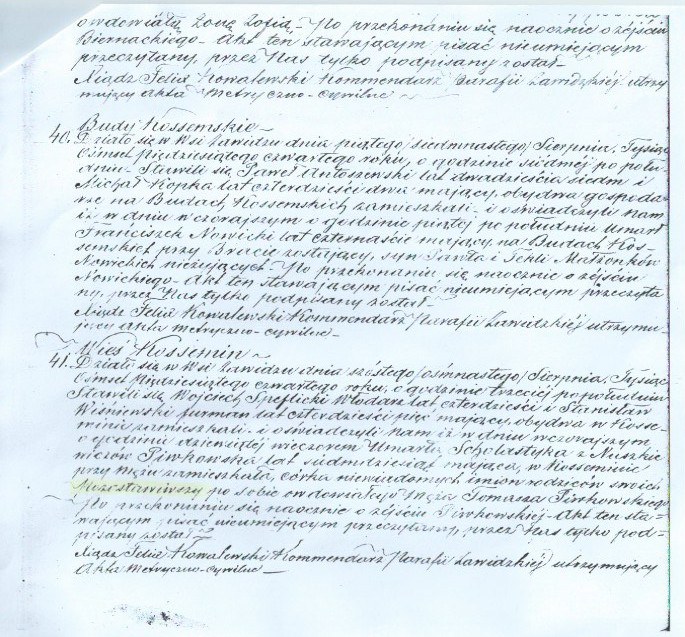 owdowiałą Żonę Zofią.– Po przekonaniu się naocznie o zejściu
Biernackiego– Akt ten stawającym pisać nieumiejącym
przeczytany, przez Nas tylko podpisany został–
Xiądz Felix Kowalewski Kommendarz Parafii Zawidzkiéj utrzy
mujący Akta Metryczno-Cywilne–
Budy Kossemskie–
40. Działo się w Wsi Zawidzu dnia piątego/siedmnastego/Sierpnia, Tysiąc
Ośmset Pięćdziesiątego czwartego roku, o godzinie siódméj po połu-
dniu– Stawili się Paweł Antoszewski lat dwadzieścia siedm i
Michał Kopka lat czterdzieści dwa mający, obydwa gospoda-
rze na Budach Kossemskich zamieszkali– i oświadczyli Nam
iż w dniu wczorajszym o godzinie piątéj po południu Umarł
Franciszek Nowicki lat czternaście mający na Budach Kos-
semskich przy Bracie zostający, syn Pawła i Tekli Małżonków
Nowickich nieżyjących– Po przekonaniu się naocznie o zejściu
Nowickiego– Akt ten stawającym pisać nieumiejącym przeczyta
ny, przez Nas tylko podpisany został–
Xiądz Felix Kowalewski Kommendarz Parafii Zawidzkiéj utrzymu-
jący Akta Metryczno-Cywilne–
Wieś Kossemin–
41. Działo się w Wsi Zawidzu dnia szóstego/ośmnastego/Sierpnia, Tysiąc
Ośmset Pięćdziesiątego czwartego roku, o godzinie trzeciéj popołudniu
Stawili się Wojciech Włodarz lat czterdzieści i Stanisław
Wiśniewski furman lat czterdzieści pięć mający, obydwa w Kosse-
minie zamieszkali– i oświadczyli Nam iż w dniu wczorajszym
o godzinie dziewiątéj wieczorem Umarła Scholastyka z
Piwkowska lat siedmdziesiąt mająca, w Kosseminie
przy Mężu zamieszkała, córka niewiadomych imion rodziców swoich
Pozostawiwszy po sobie owdowiałego Męża Tomasza Piwkowskiego
Po przekonaniu się naocznie o zejściu Piwkowskiéj– Akt ten sta-
wającym pisać nieumiejącym przeczytany, przez Nas tylko pod-
pisany został–
Xiądz Felix Kowalewski Kommendarz Parafii Zawidzkiéj utrzymujący
Akta Metryczno-Cywilne–